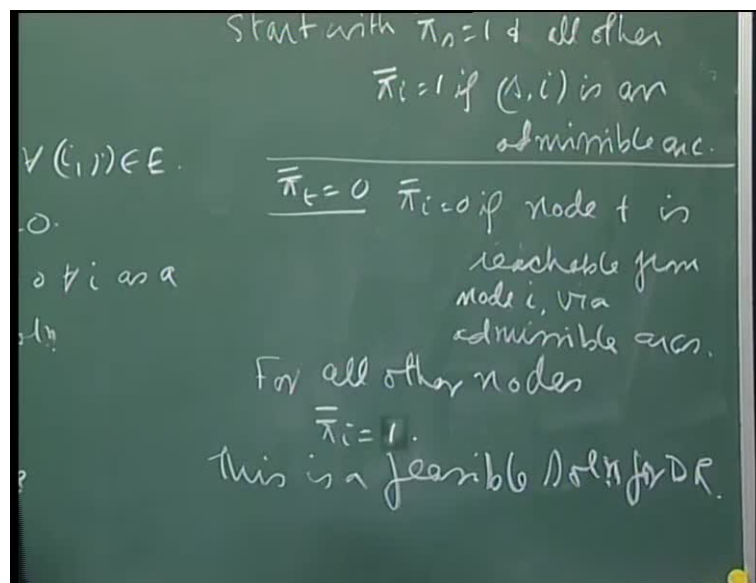 Start with π_s = 1 & all other
π̄_i = 1 if (s, i) is an
admissible arc.
∀ (i, j) ∈ E.
π̿_t = 0 π̄_i = 0 if node t is
0.
reachable from
0 ∀ i as a
node i, via
admissible arcs.
For all other nodes
π̿_i = 1.
This is a feasible Soln for DR.